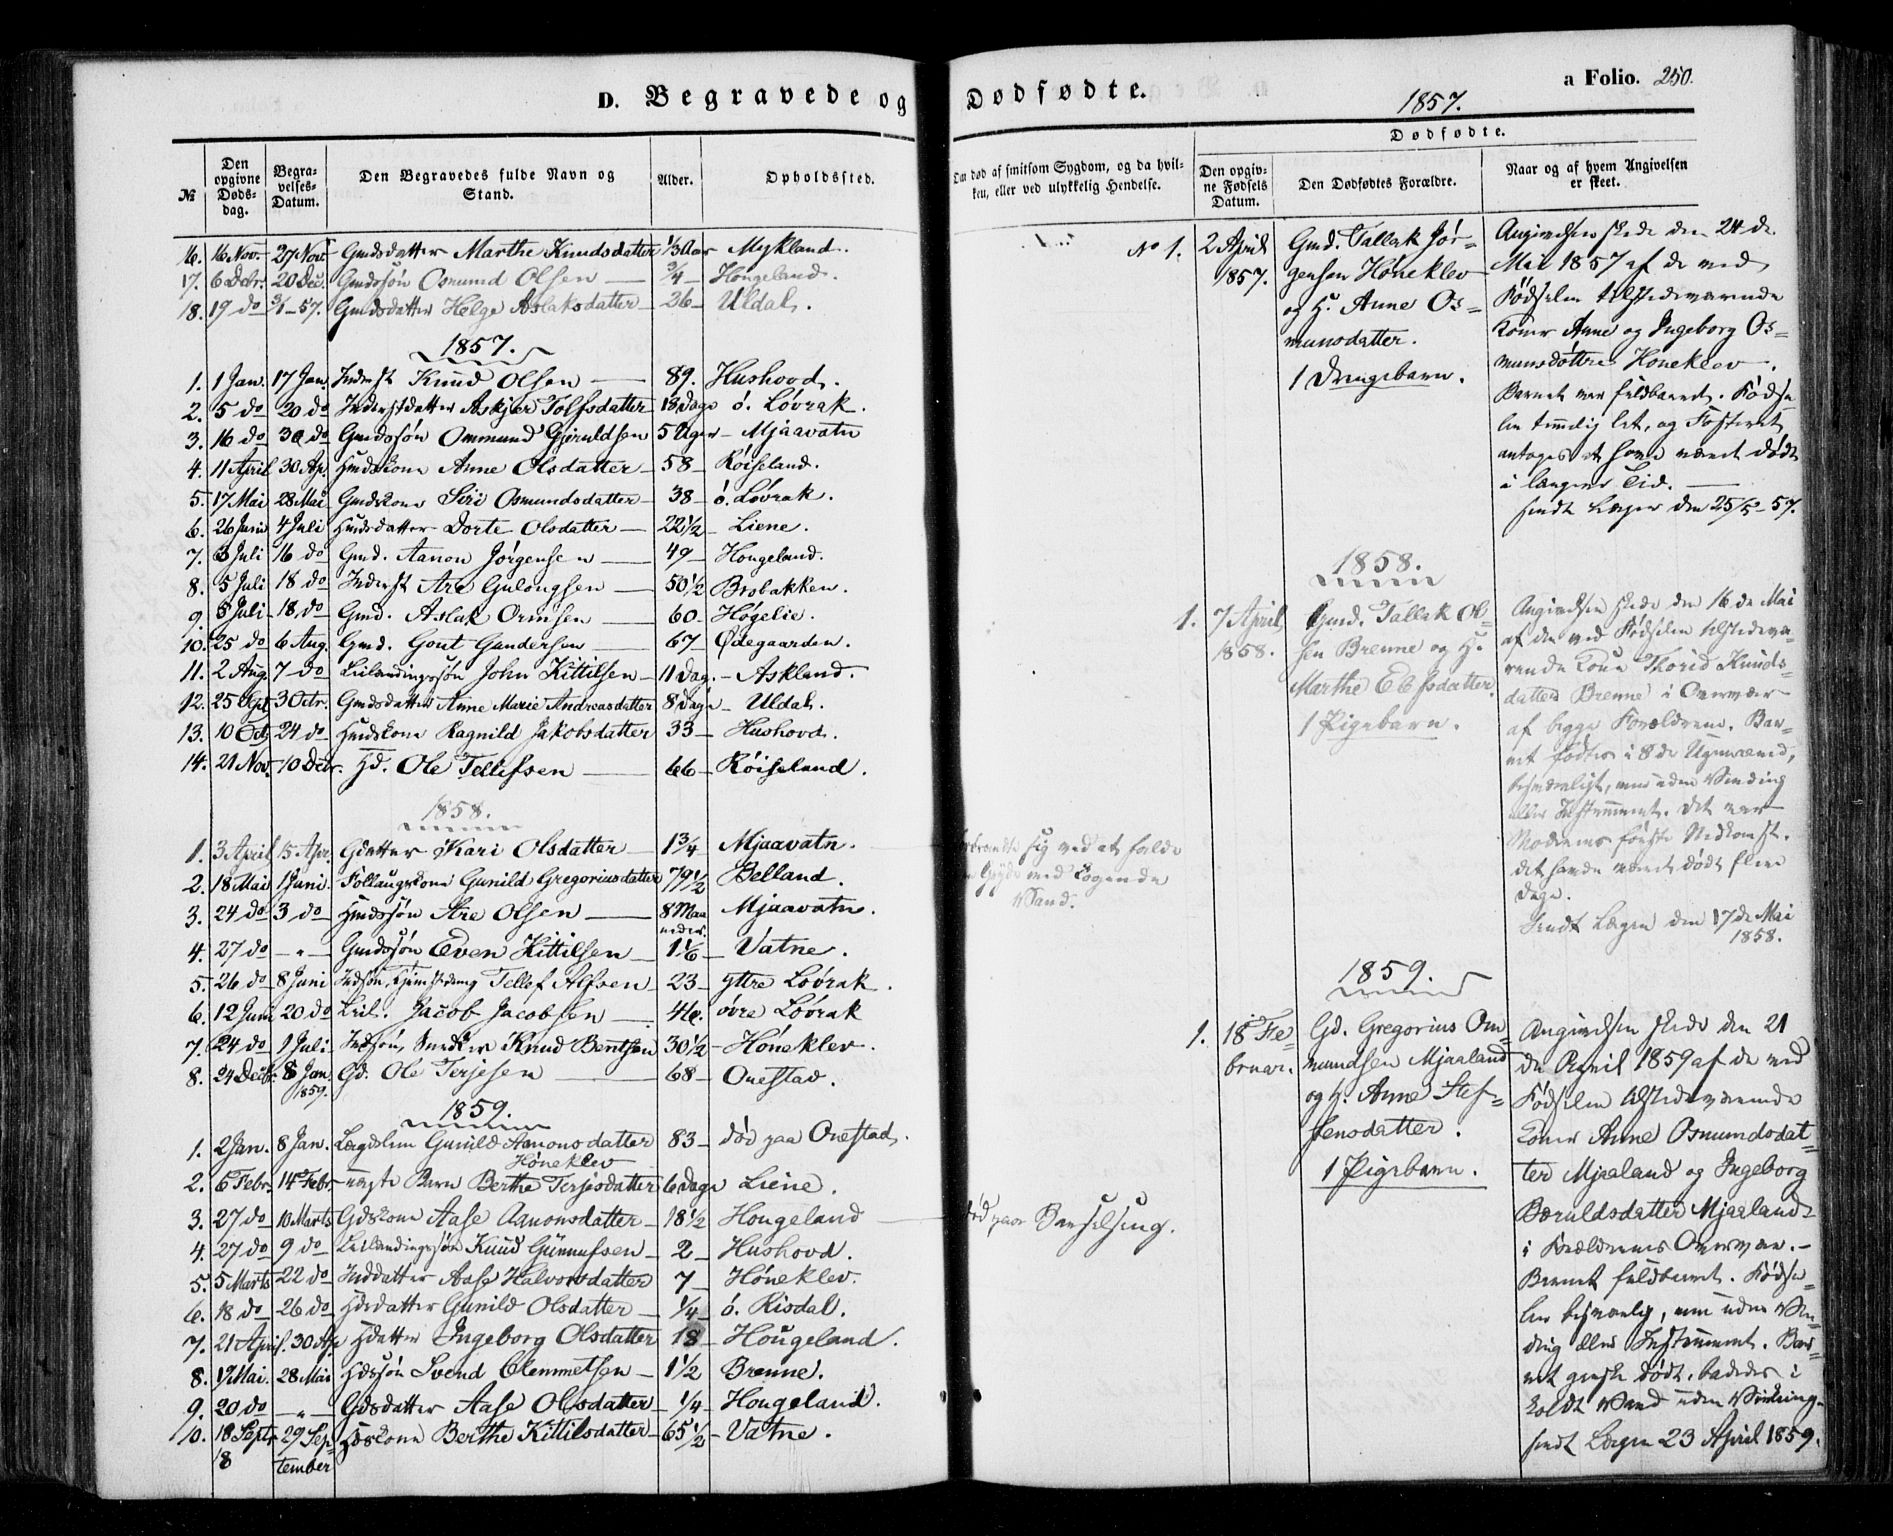 D. Begravede og Dødfødte.
a Folio. 250.
1857.
№
Den opgivne Døds-dag.
Begra-velses-Datum.
Den Begravedes fulde Navn og Stand.
Alder.
Opholdssted.
Om død af smitsom Sygdom, og da hvil-ken, eller ved ulykkelig Hendelse.
Dødfødte.
Den opgiv-ne Fødsels Datum.
Den Dødfødtes Forældre.
Naar og af hvem Angivelsen er skeet.
16. 16 Nov. 27 Nov. Gmdsdatter Marthe Knudsdatter 1/3 Aar Mykland.
17. 6 Decbr. 20 Dec. Gmdssøn Osmund Olsen 3/4 Hougeland.
18. 19 do 3/1-57. Gmdsdatter Helge Aslaksdatter 36 Uldal.
1857.
1. 1 Jan. 17 Jan. Inderst Knud Olsen 89. Hushovd.
2. 5 do 20 do Inderstdatter Askjer Tolfsdatter 18 Dage ö. Løvrak.
3. 16 do 30 do Gmdssøn Ommund Gjeruldsen 5 Uger Mjaavatn
4. 11 April 30 Ap. Hmdskone Anne Olsdatter 58 Röiseland.
5. 17 Mai 28 Mai Gmdskone Siri Osmundsdatter 38 ö. Løvrak.
6. 26 Juni 4 Juli Hmdsdatter Dorte Olsdatter 22 1/2 Liene.
7. 3 Juli 16 do Gmd. Aanon Jørgensen 49 Hougeland.
8. 5 Juli 18 do Inderst Are Gulongsen 50 1/2 Brobakken.
9. 8 Juli 18. do Gmd. Aslak Ormsen 60 Høgelie.
10. 25 do 6 Aug. Gmd. Gout Gundersen 67 Ødegaarden.
11. 2 Aug 7 do Leilændingssøn John Kittilsen 11 Dag. Askland.
12. 25 Sept 3 Octr. Gmdsdatter Anne Marie Andreasdatter 8 Dage Uldal.
13. 10 Oct 24 do Hmdskone Ragnild Jakobsdatter 33 Hushovd.
14. 21 Nov. 10 Decbr. Hd. Ole Tellefsen 66 Röiseland.
1858.
1. 3 April 15 Apr. Gdatter Kari Olsdatter 1 3/4 Mjaavatn.
2. 18 Mai 1 Juni. Follaugskone Gunild Gregoriusdatter 79 1/2 Belland.
3. 24 do 3 do Hmdssøn Are Olsen 8 Maa neder. Mjaavatn.
4. 27 do - " - Gmdssøn Even Kittilsen 1 1/6 Vatne.
5. 26 do 8 Juni Tellef Alfsen 23 yttre Løvrak.
6. 12 Juni 20 do Leil. Jacob Jacobsen øvre Løvrak
7. 24 do 1 Juli Indsøn, Knud Bentsen 30 1/2 Høneklev.
8. 24 Decbr. 8 Jan. 1859. Gd. Ole Terjesen 68 Onestad.
1859.
1. 2 Jan. 8 Jan. Lægdslem Gunild Aanonsdatter 83 død paa Onestad.
Høneklev
2. 6 Febr. 14 Febr uægte Barn Berthe Terjesdatter 6 Dage Liene.
3. 27 do 10 Marts Gdskone Aase Aanonsdatter 18 1/2 Hougeland
4. 27 do 9 do Leilændingssøn Knud Gunnufsen 2 Hushovd.
5. 5 Marts 22 do Inddatter Aase Halvorsdatter 7 Høneklev.
6. 18 do 26 do Hdsdatter Gunild Olsdatter 1/4 ö. Risdal.
7. 21 April. 30 Ap Hdatter Ingeborg Olsdatter 18 Hougeland.
8. 17 Mai. 28 Mai Hdssøn Svend Clemmetsen 1 1/2 Brenne.
9. 20 do - " - Gdsdatter Aase Olsdatter 1/4 Hougeland.
10. 18 Sept 29 Sep- Hdskone Berthe Kittilsdatter 65 1/2 Vatne.
8 tember
sig ved at falde
med kogende
Vand.
død paa Barselseng.
No 1. 2 April 1857.
Gmd. Tallak Jör-
gensen Höneklev
og H. Anne Os-
munsdatter.
1 Drengebarn.
Angivelsen skede den 24 de
Mai 1857 af de ved
Fødselen tilstedeværende
Koner Anne og Ingeborg Os-
munsdøttre Höneklev.
Barnet var fuldbaaret. Fødse-
len temmelig let, og Fosteret
antages at have været dødt
i længere Tid.
sendt Lægen den 25/5-57.
1858.
1. 7 April 1858.
Gmd. Tallak Ol-
sen Brenne og H.
Marthe Elefsdatter.
1 Pigebarn.
Angivelsen skede den 16 de Mai
af den ved Fødselen tilstedevæ-
rende Kone Thorid Knuds-
datter Brenne i Overvær
af begge Forældrene. Bar-
net fødtes i 8 de
besværligt, men uden Vending
eller Instrument. Det var
Moderens første Nedkomst.
det havde været dødt flere
Dage.
Sendt Lægen den 17 de Mai
1858.
1859.
1. 18 Fe-
bruar.
Gd. Gregorius Om-
mundsen Mjaaland
og H. Anne Stef-
fensdatter.
1 Pigebarn.
Angivelsen skede den 21
de April 1859 af de ved
Fødselen tilstedeværende
Koner Anne Osmundsdat-
ter Mjaaland og Ingeborg
Bæruldsdatter Mjaaland
i Forældrenes Overvær.
Barnet fuldbaaret. Fødse-
len besværlig, men uden Ven-
ding eller Instrument. Bar-
net ganske dødt, badedes i
koldt Vand uden Virkning.
sendt Lægen 23 April 1859.